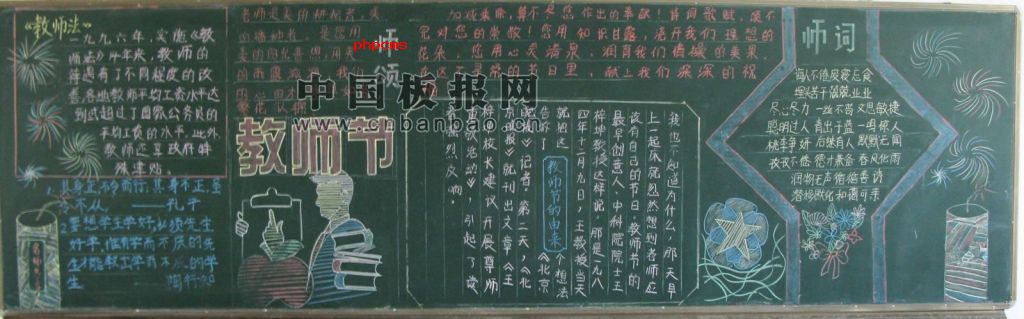 《教师法》
一九九六年,实施《教
师法》4年来,教师的
待遇有了不同程度的改
善,各地教师平均工资水平达
到或超过了国家公务员的
平均工资的水平,此外
教师还享政府特
殊津贴。
1、其身正,不令而行,其身不正,虽
令不从。——孔子
2、要想学生学好,必须先生
好学,惟有学而不厌的先
生才能教出学而不厌的学
生 陶行知
师颂
老师是美的耕耘者,美
的播种者。是您用
美的阳光普照,用美
的雨露滋
加减乘除,算不尽您作出的奉献!诗词歌赋,颂不
完对您的崇敬!您用知识甘露,浇开我们理想的
花朵 您用心灵清泉,润育我们情操的美果
在这不寻常的节日里,献上我们深深的祝
phpcms
中国板报网
www.cnbanbao.cn
教师节
教师节的由来
我也不知道为什么,那天早
上一起床就忽然想到老师应
该有自己的节日。教师节的
最早创意人、中科院院士王
梓坤教授这样说。那是一九八
四年十二月九日,王教授当天
就把这个想法
告诉了《北京
晚报》记者,第二天,《北
京晚报》就刊出文章《王
梓坤校长建议开展尊师
重教活动》,引起了读
者强烈反响。
师词
诲人不倦废寝忘食
埋头苦干兢兢业业
尽心尽力一丝不苟文思敏捷
聪明过人青出于蓝一鸣惊人
桃李争妍后继有人默默无闻
孜孜不倦德才兼备春风化雨
润物无声循循善诱
潜移默化和蔼可亲